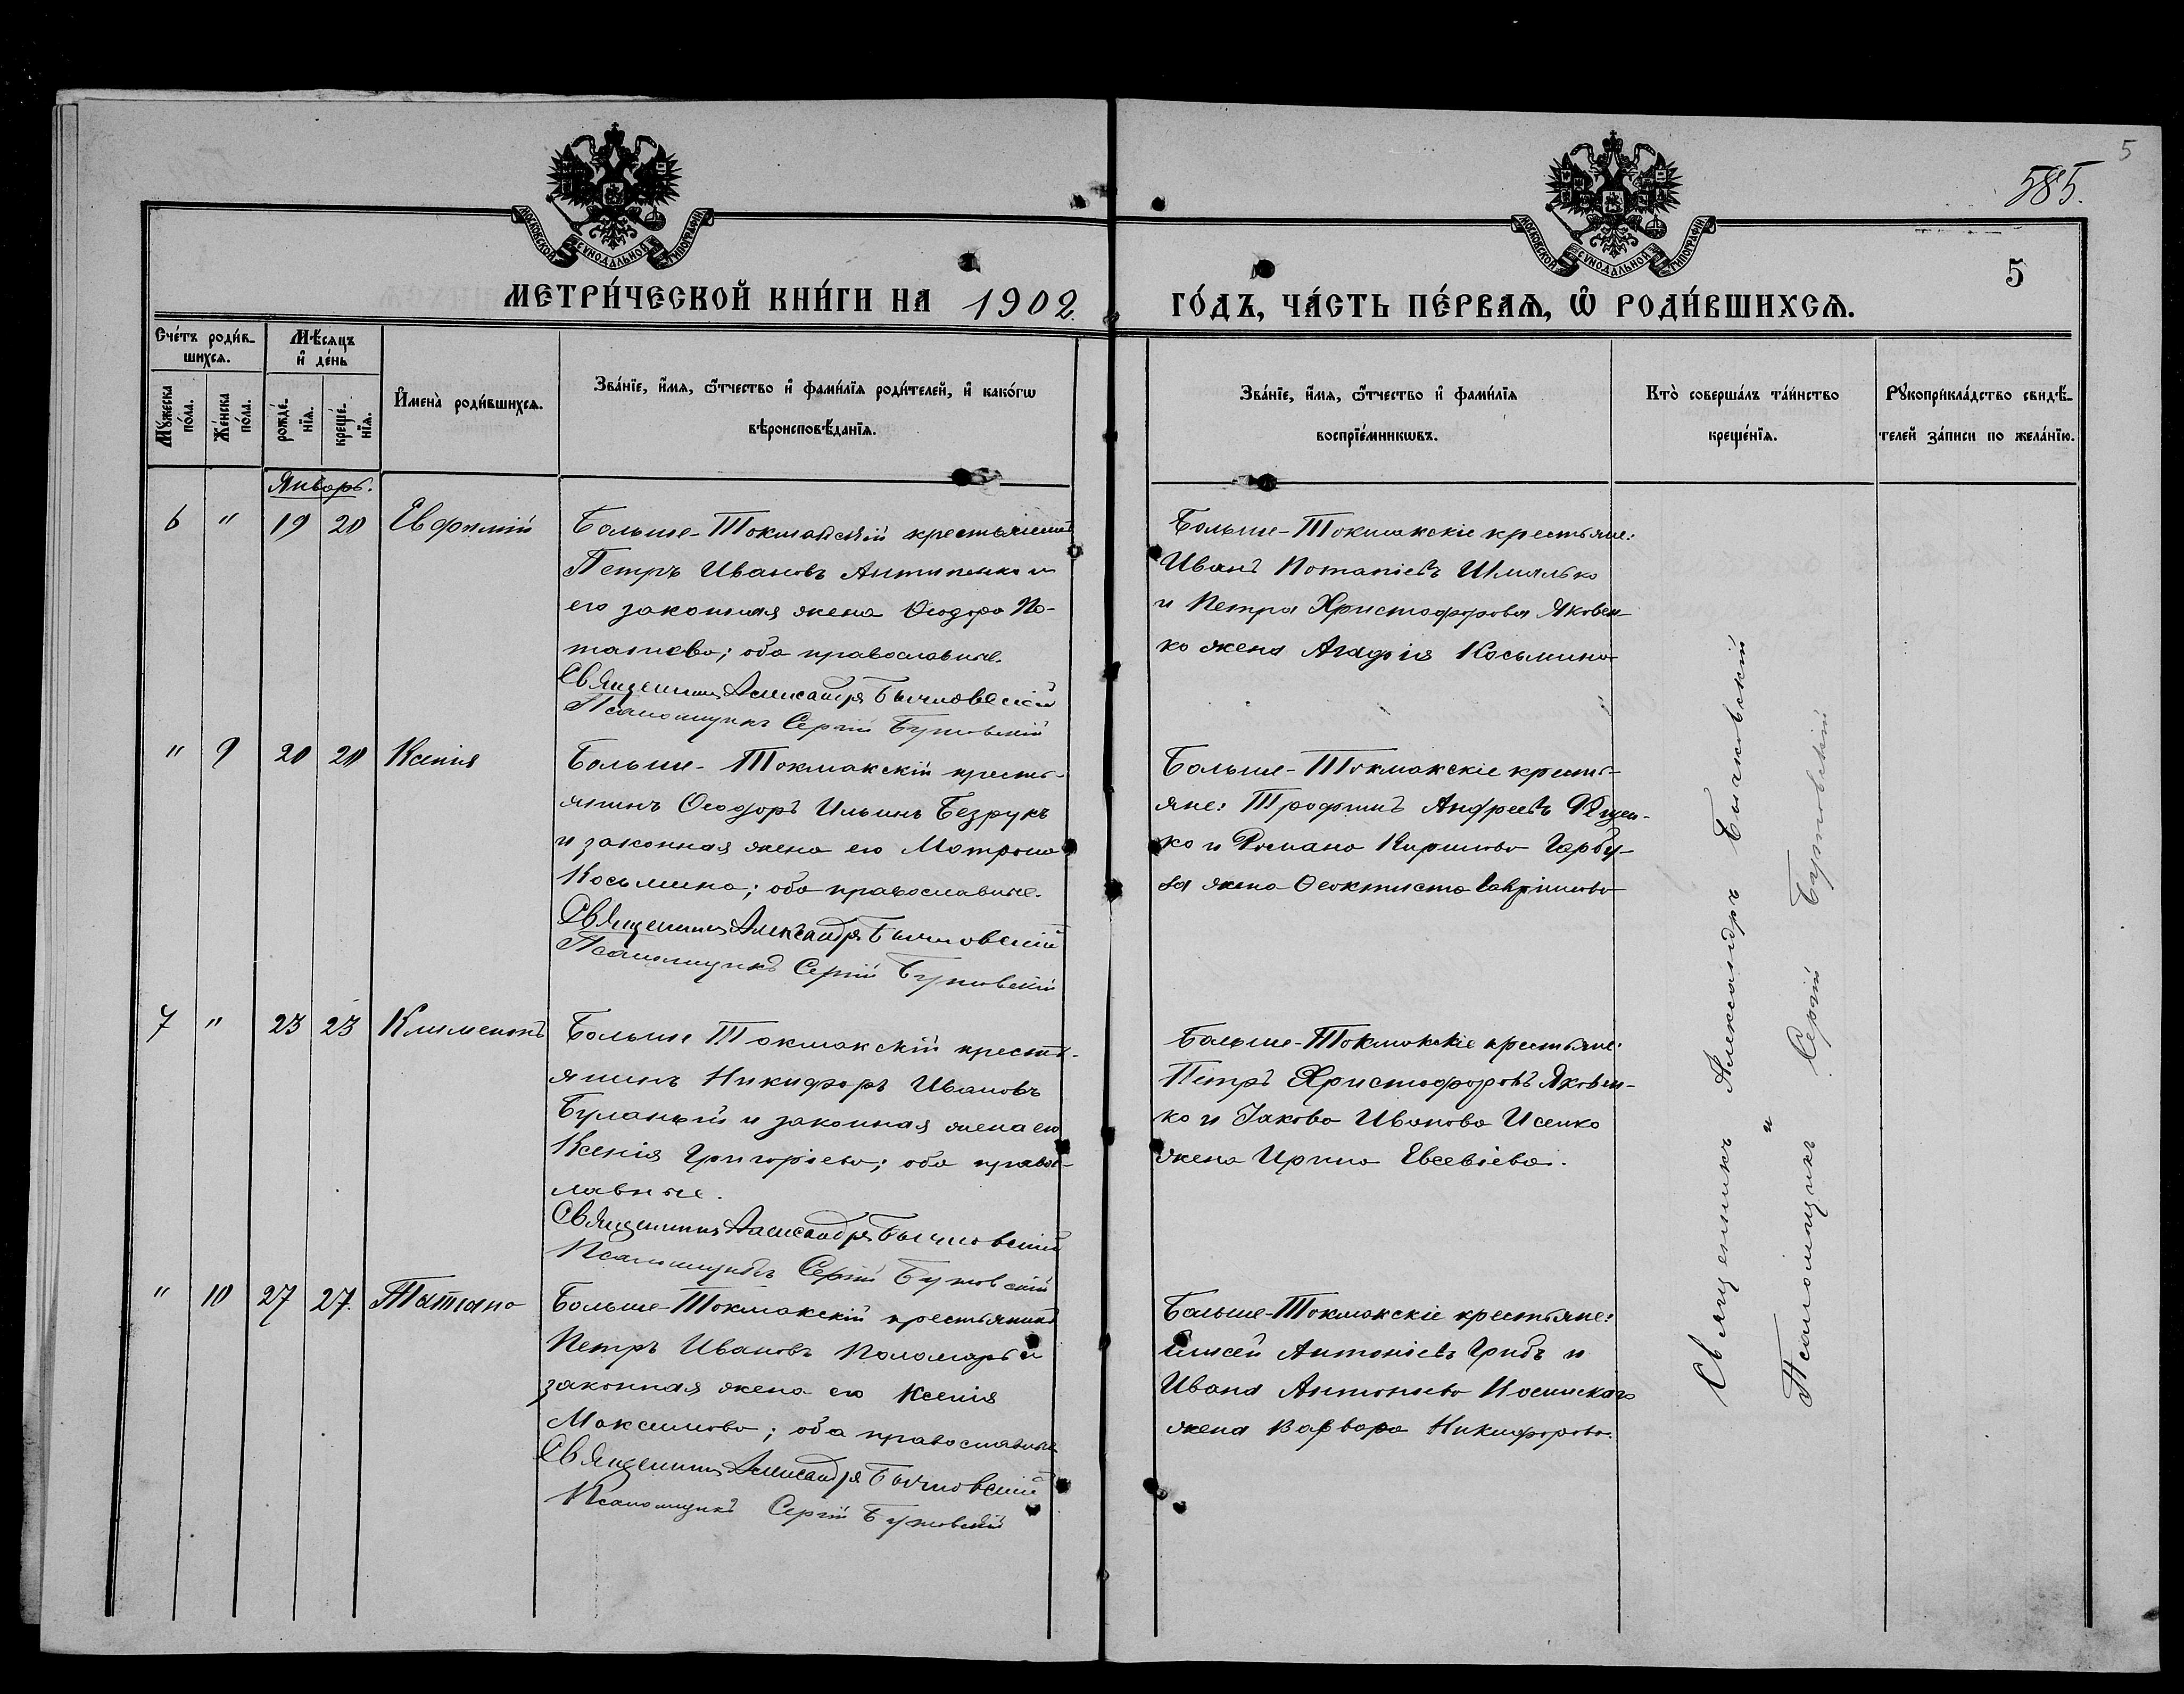 5
585.
МОСКОВСКОЙ СѴНОДАЛЬНОЙ ТИПОГРАФІИ
МОСКОВСКОЙ СѴНОДАЛЬНОЙ ТИПОГРАФІИ
5
МЕТРИ́ЧЕСКОЙ КНИ́ГИ НА 1902 ГО́ДЪ, ЧА́СТЬ ПЕ́РВАѦ, Ѡ҆ РОДИ́ВШИХСѦ.
Сче́тъ роди́в-
шихсѧ.
Мѣ́сѧцъ
и҆ де́нь
Мꙋ́жеска
по́ла.
Же́нска
по́ла.
рожде́-
нїѧ.
креще́-
нїѧ.
И҆мена̀ роди́вшихсѧ.
Зва́нїе, и҆́мѧ, ѻ҆́тчество и҆ фами́лїѧ роди́телей, и҆ како́гѡ
вѣроисповѣ́данїѧ.
Зва́нїе, и҆́мѧ, ѻ҆́тчество и҆ фами́лїѧ
воспрїе́мникѡвъ.
Кто̀ соверша́лъ та́инство
креще́нїѧ.
Рꙋкоприкла́дство свидѣ́-
телей за́писи по жела́нїю.
Январь.
6 " 19 20 Евфимій
Больше-Токмакскій крестьянинъ
Петръ Ивановъ Антипенко и
его законная жена Ѳеодора По-
тапіева; оба православные.
Священникъ Александръ Бычковскій
Псаломщикъ Сергій Бутовскій
Больше-Токмакскіе крестьяне:
Иванъ Потапіевъ Шмалько
и Петра Христофорова Яковен-
ко жена Агафія Косьмина
" 9 20 20 Ксенія
Больше-Токмакскій кресть-
янинъ Ѳеодоръ Ильинъ Безрукъ
и законная жена его Матрона
Косьмина; оба православные.
Священникъ Александръ Бычковскій
Псаломщикъ Сергій Бутовскій
Больше-Токмакскіе кресть-
яне: Трофимъ Андреевъ
ко и Романа Кирилова Гарбу-
за жена Ѳеоктиста Гавріилова
7 " 23 23 Климентъ
Больше Токмакскій кресть-
янинъ Никифоръ Ивановъ
Буланый и законная жена его
Ксенія Григоріева; оба правос-
лавные.
Священникъ Александръ Бычковскій
Псаломщикъ Сергій Бутовскій
Больше-Токмакскіе крестьяне:
Петръ Христофоровъ Яковен-
ко и Іакова Иванова Исенко
жена Ирина Евсевіева.
" 10 27 27. Татіана
Больше-Токмакскій крестьянинъ
Петръ Ивановъ Поломарь и
законная жена его Ксенія
Максимова; оба православные
Священникъ Александръ Бычковскій
Псаломщикъ Сергій Бутовскій
Больше-Токмакскіе крестьяне:
Елисей Антоніевъ Грибъ и
Ивана Антоніева Косинскаго
жена Варвара Никифорова.
Священникъ Александръ Бычковскій
и
Псаломщикъ Сергій Бутовскій